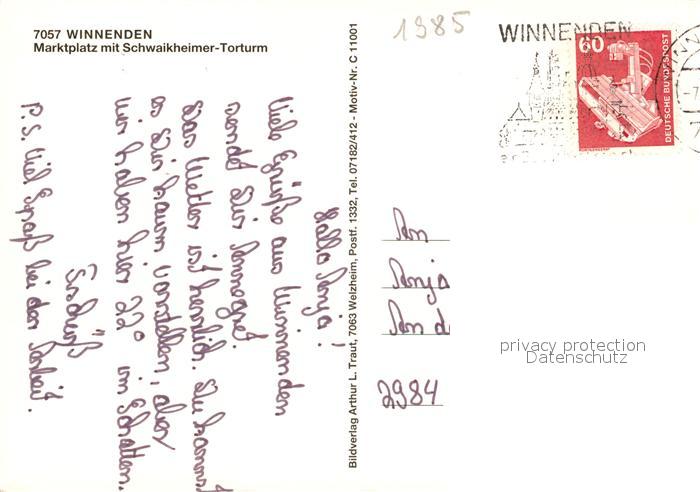 7057 WINNENDEN
Marktplatz mit Schwaikheimer-Torturm
Hallo Anja!
Viele Grüße aus Winnenden
sendet Dir Annegret.
Das Wetter ist herrlich. Du kannst
es Dir kaum vorstellen, aber
wir haben hier 22° im Schatten.
Tschüß
P.S. Viel Spaß bei der Arbeit.
Bildverlag Arthur L. Traut, 7063 Welzheim, Postf. 1332, Tel. 07182/412 - Motiv-Nr. C 11001
1985
WINNENDEN
60
DEUTSCHE BUNDESPOST
An
Anja
An d
2984
privacy protection
Datenschutz